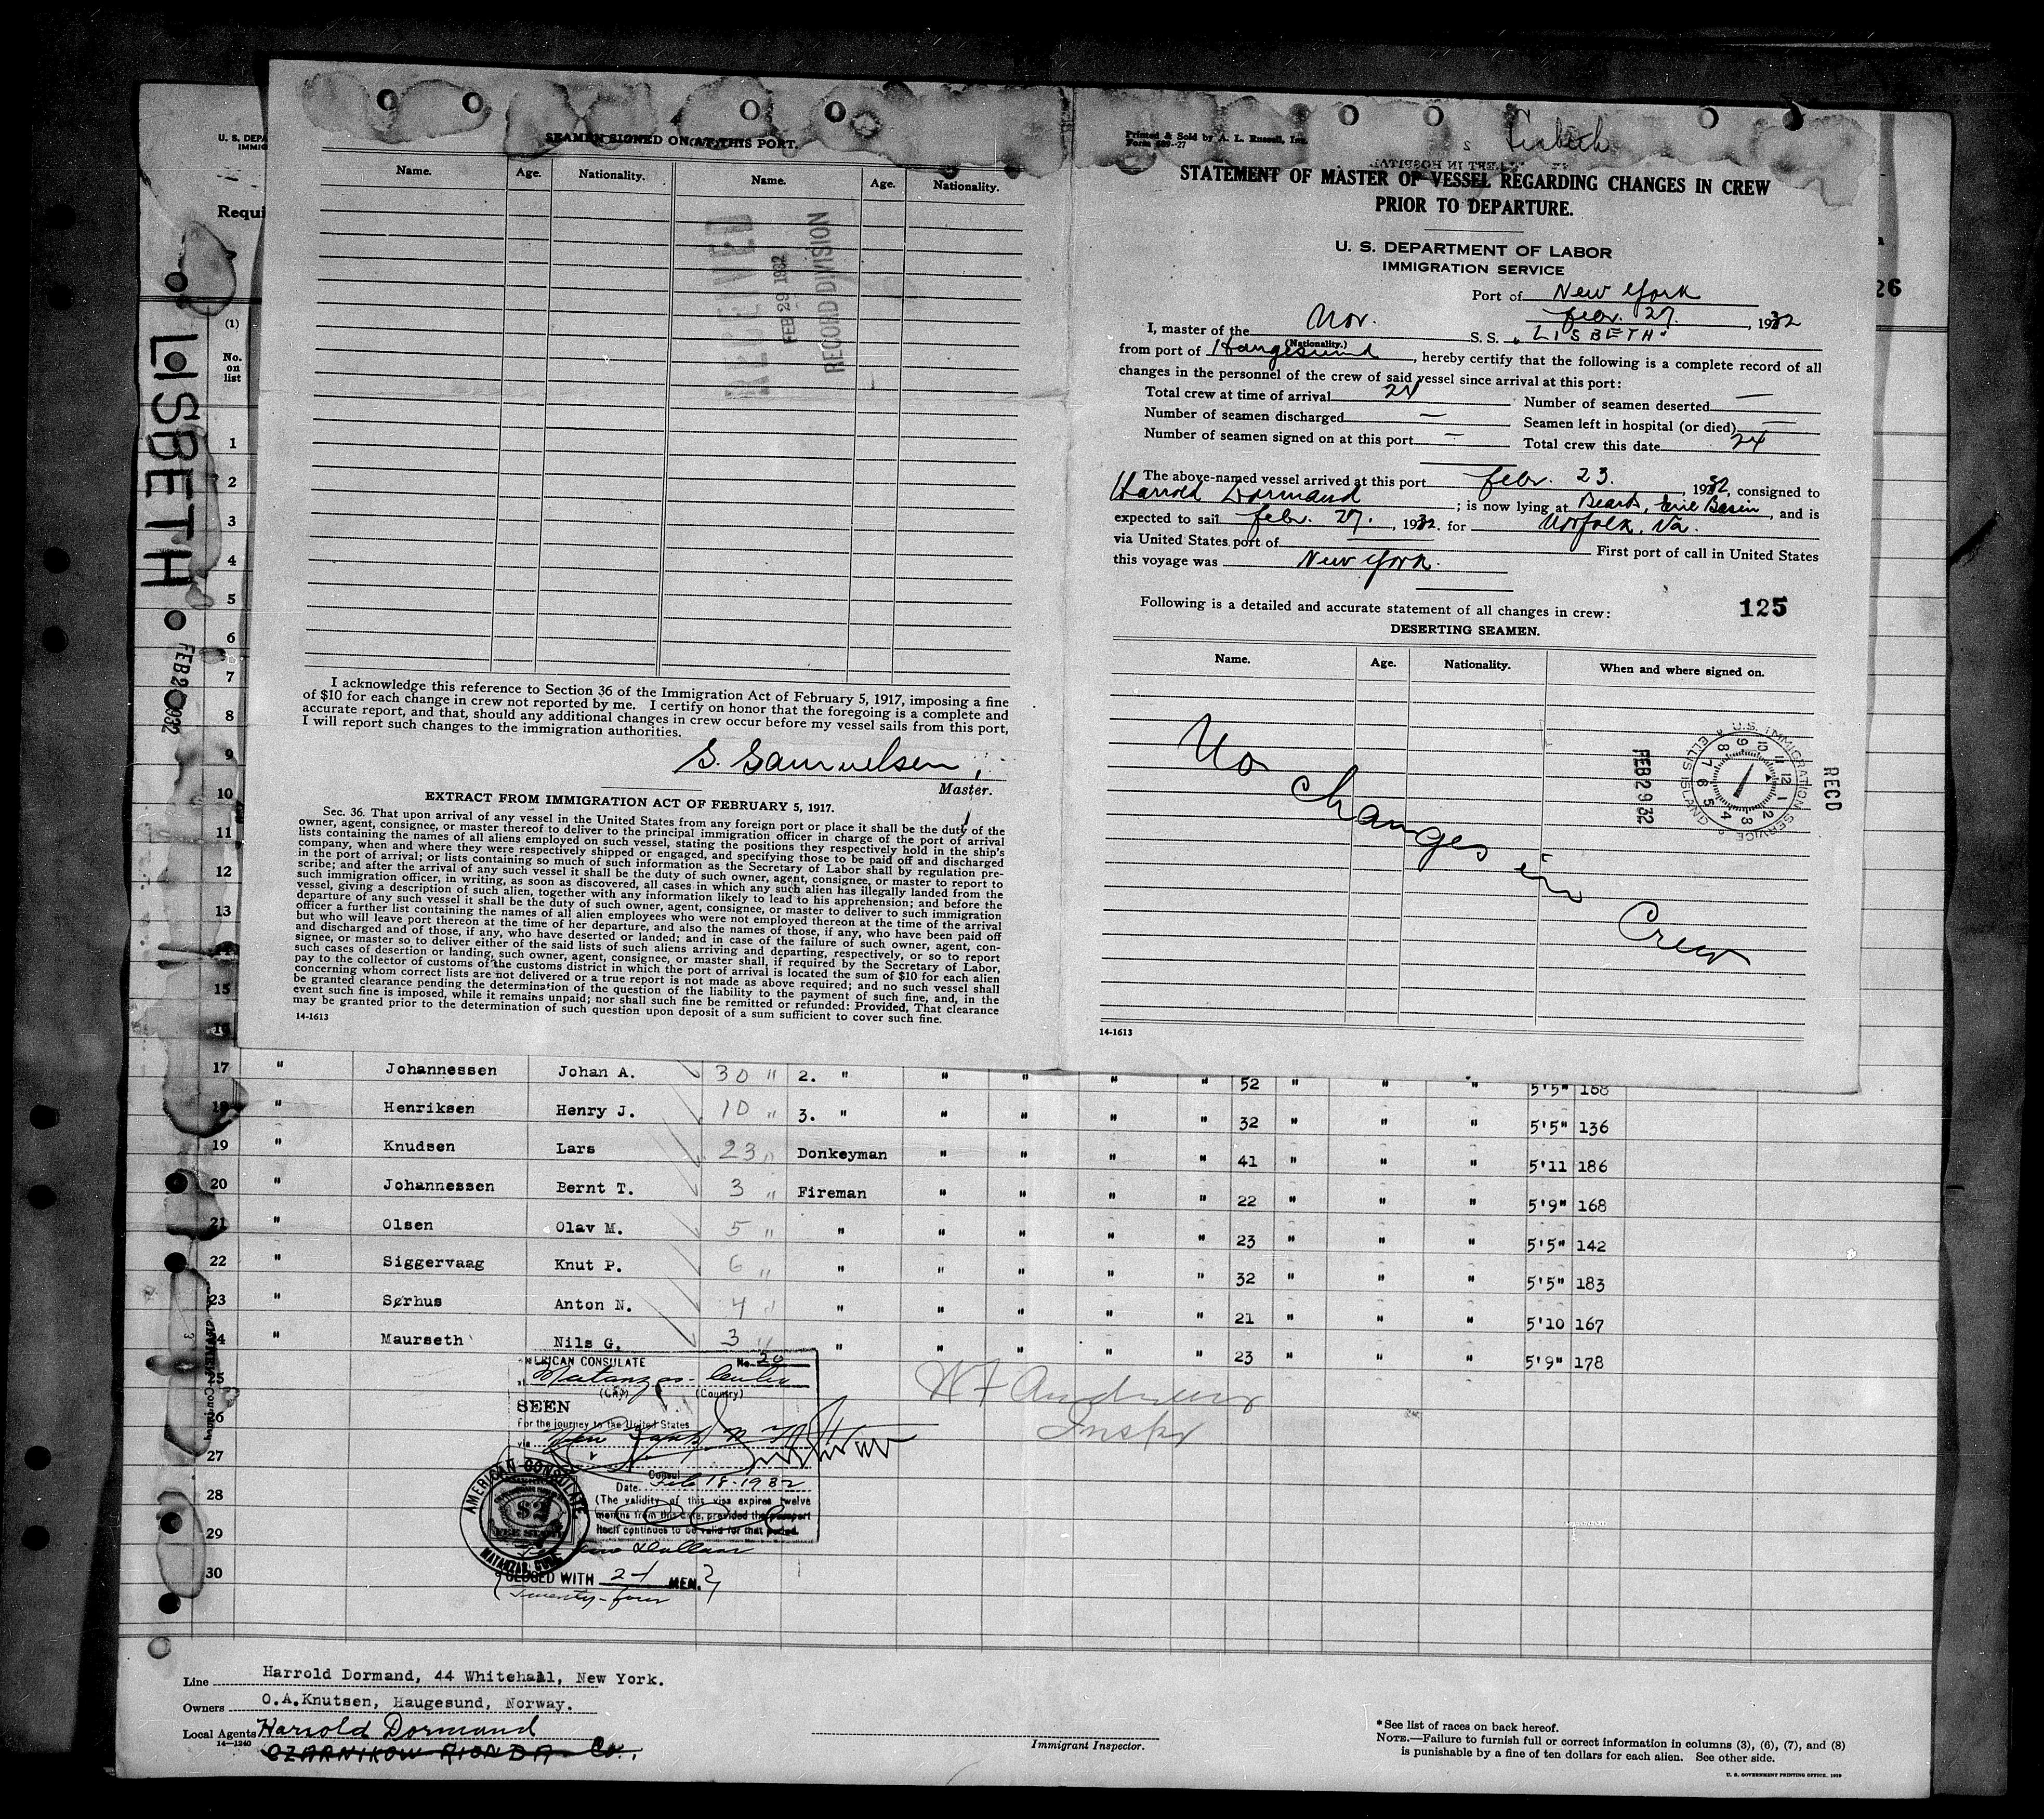 U. S. DEPA
IMMIG
Requi
(1)
No.
on
list
LISBETH
SEAMEN SIGNED ON AT THIS PORT.
Name. Age. Nationality. Name. Age. Nationality.
RECEIVED
FEB 29 1932
RECORD DIVISION
I acknowledge this reference to Section 36 of the Immigration Act of February 5, 1917, imposing a fine
of $10 for each change in crew not reported by me. I certify on honor that the foregoing is a complete and
accurate report, and that, should any additional changes in crew occur before my vessel sails from this port,
I will report such changes to the immigration authorities.
S. Samuelsen,
Master.
EXTRACT FROM IMMIGRATION ACT OF FEBRUARY 5, 1917.
Sec. 36. That upon arrival of any vessel in the United States from any foreign port or place it shall be the duty of the
owner, agent, consignee, or master thereof to deliver to the principal immigration officer in charge of the port of arrival
lists containing the names of all aliens employed on such vessel, stating the positions they respectively hold in the ship's
company, when and where they were respectively shipped or engaged, and specifying those to be paid off and discharged
in the port of arrival; or lists containing so much of such information as the Secretary of Labor shall by regulation pre-
scribe; and after the arrival of any such vessel it shall be the duty of such owner, agent, consignee, or master to report to
such immigration officer, in writing, as soon as discovered, all cases in which any such alien has illegally landed from the
vessel, giving a description of such alien, together with any information likely to lead to his apprehension; and before the
departure of any such vessel it shall be the duty of such owner, agent, consignee, or master to deliver to such immigration
officer a further list containing the names of all alien employees who were not employed thereon at the time of the arrival
but who will leave port thereon at the time of her departure, and also the names of those, if any, who have been paid off
and discharged and of those, if any, who have deserted or landed; and in case of the failure of such owner, agent, con-
signee, or master so to deliver either of the said lists of such aliens arriving and departing, respectively, or so to report
such cases of desertion or landing, such owner, agent, consignee, or master shall, if required by the Secretary of Labor,
pay to the collector of customs of the customs district in which the port of arrival is located the sum of $10 for each alien
concerning whom correct lists are not delivered or a true report is not made as above required; and no such vessel shall
be granted clearance pending the determination of the question of the liability to the payment of such fine, and, in the
event such fine is imposed, while it remains unpaid; nor shall such fine be remitted or refunded: Provided, That clearance
may be granted prior to the determination of such question upon deposit of a sum sufficient to cover such fine.
14-1613
Printed & Sold by A. L. Russell, Inc.
Form 689--27
STATEMENT OF MASTER OF VESSEL REGARDING CHANGES IN CREW
PRIOR TO DEPARTURE.
U. S. DEPARTMENT OF LABOR
IMMIGRATION SERVICE
Port of New York
Febr. 27. , 1932
I, master of the Nor. S. S. "LISBETH"
(Nationality.)
from port of Haugesund , hereby certify that the following is a complete record of all
changes in the personnel of the crew of said vessel since arrival at this port:
Total crew at time of arrival 24 Number of seamen deserted —
Number of seamen discharged — Seamen left in hospital (or died) —
Number of seamen signed on at this port — Total crew this date 24
The above-named vessel arrived at this port Febr. 23. , 1932, consigned to
Harrold Dormand ; is now lying at Beards, Erie Basin , and is
expected to sail Febr. 27. , 1932. for Norfolk, Va.
via United States port of First port of call in United States
this voyage was New York.
Following is a detailed and accurate statement of all changes in crew: 125
DESERTING SEAMEN.
Name. Age. Nationality. When and where signed on.
No changes in Crew
FEB 29 32
U.S. IMMIGRATION SERVICE ELLIS ISLAND
RECD
14-1613
26
1
2
3
4
5
6
7
8
9
10
11
12
13
15
16
17 " Johannessen Johan A. 30 " 2. " " " " " 52 " " " 5'5" 168
18 " Henriksen Henry J. 10 " 3. " " " " " 32 " " " 5'5" 136
19 " Knudsen Lars 23 " Donkeyman " " " " 41 " " " 5'11 186
20 " Johannessen Bernt T. 3 " Fireman " " " " 22 " " " 5'9" 168
21 " Olsen Olav M. 5 " " " " " " 23 " " " 5'5" 142
22 " Siggervaag Knut P. 6 " " " " " " 32 " " " 5'5" 183
23 " Sørhus Anton N. 4 " " " " " " 21 " " " 5'10 167
24 " Maurseth Nils G. 3 " " " " " " 23 " " " 5'9" 178
25
26
27
28
29
30
AMERICAN CONSULATE No. 20
at Matanzas - Cuba
(City) (Country)
SEEN
For the journey to the United States
via New York N Y
Consul
Date Feb 18-1932
(The validity of this visa expires twelve
months from this date, provided the passport
itself continues to be valid for that period.
AMERICAN CONSULATE
$2
MATANZAS, CUBA
CLOSED WITH 24 MEN.
Twenty-four
W F Andrews
Inspr
Line Harrold Dormand, 44 Whitehall, New York.
Owners O.A.Knutsen, Haugesund, Norway.
Local Agents Harrold Dormand
14—1240
CZARNIKOW RIONDA Co.
Immigrant Inspector.
*See list of races on back hereof.
NOTE.—Failure to furnish full or correct information in columns (3), (6), (7), and (8)
is punishable by a fine of ten dollars for each alien. See other side.
U. S. GOVERNMENT PRINTING OFFICE. 1929